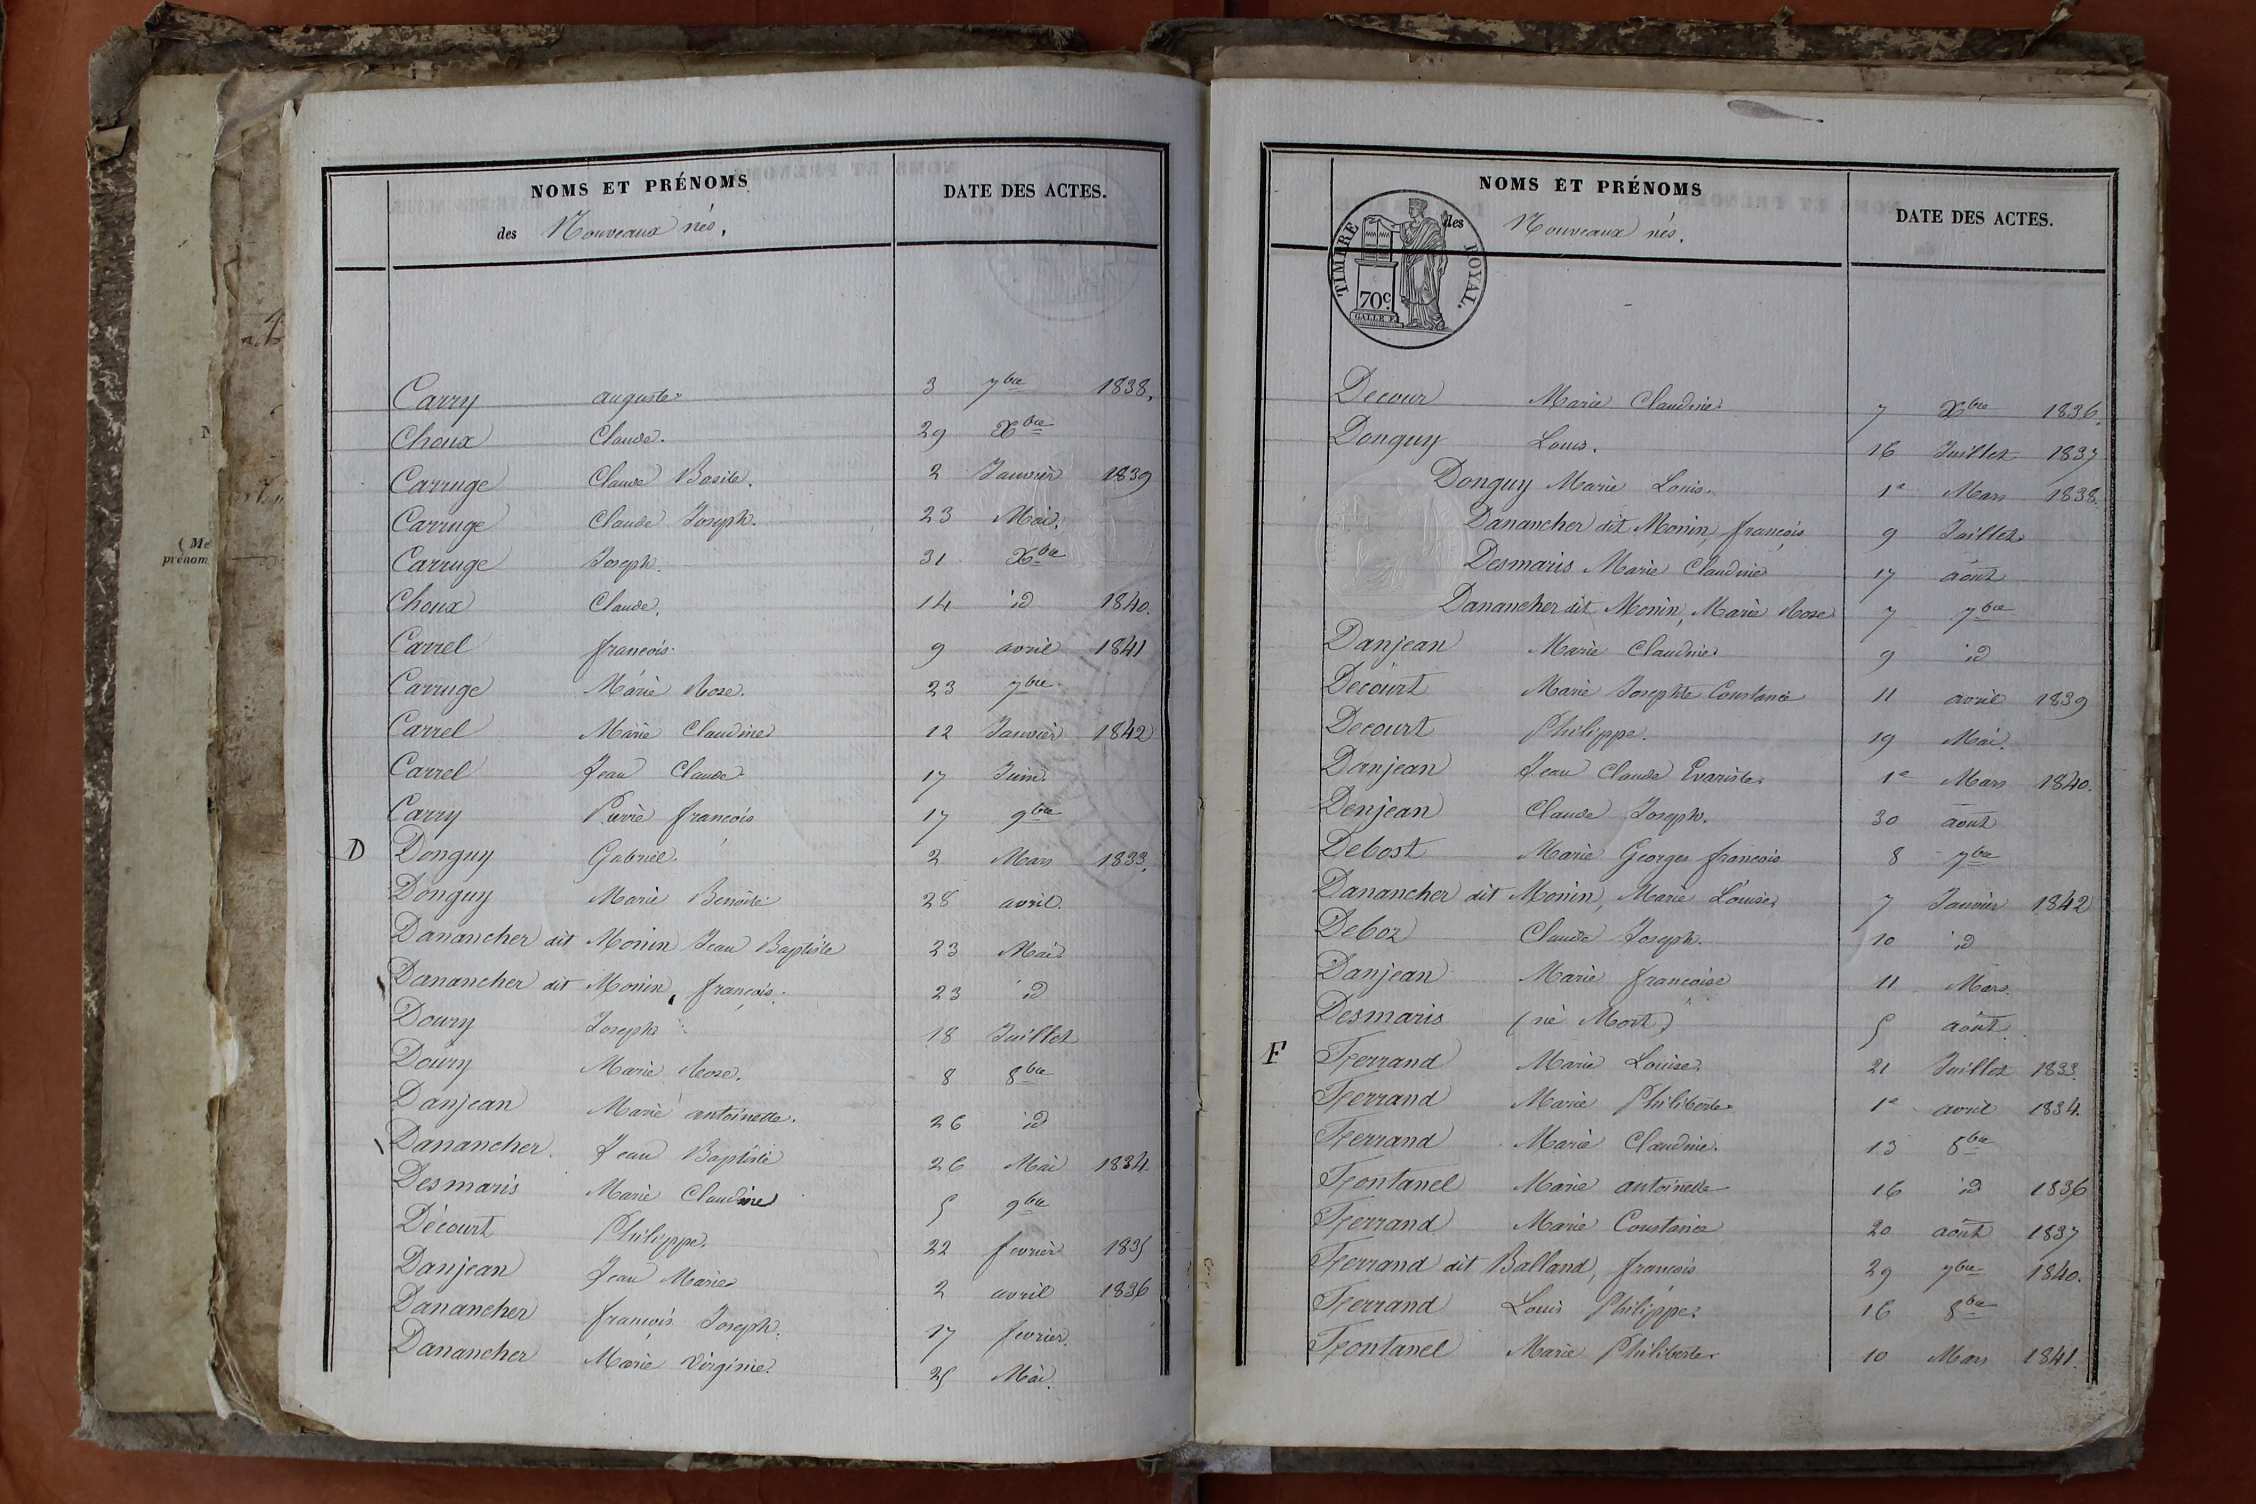 NOMS ET PRÉNOMS
DATE DES ACTES.
des Nouveaux nés.
Carry auguste 3 7bre 1838.
Choux Claude. 29 Xbre
Carruge Claude Basile. 2 Janvier 1839
Carruge Claude Joseph. 23 Mai.
Carruge Joseph. 31 Xbre
Choux Claude. 14 id 1840.
Carrel françois. 9 avril 1841
Carruge Marie Rose. 23 7bre
Carrel Marie Claudine 12 Janvier 1842
Carrel Jean Claude 17 Juin
Carry Pierre françois 17 9bre
D Donguy Gabriel. 2 Mars 1833.
Donguy Marie Benoite 28 avril.
Danancher dit Monin Jean Baptiste 23 Mai
Danancher dit Monin, françois. 23 id
Doury Joseph 18 Juillet
Doury Marie Rose. 8 8bre
Danjean Marie antoinette. 26 id
Danancher. Jean Baptiste 26 Mai 1834
Desmaris Marie Claudine 5 9bre
Décourt Philippe. 22 fevrier 1835
Danjean Jean Marie 2 avril 1836
Danancher françois Joseph. 17 fevrier.
Danancher Marie Virginie. 25 Mai.
NOMS ET PRÉNOMS
DATE DES ACTES.
des Nouveaux nés.
TIMBRE ROYAL.
70c
GALLE F.
Decour Marie Claudine 7 Xbre 1836.
Donguy Louis. 16 Juillet 1837
Donguy Marie Louis. 1e Mars 1838.
Danancher dit Monin, françois 9 Juillet
Desmaris Marie Claudine 17 août
Danancher dit Monin, Marie Rose 7 7bre
Danjean Marie Claudine 9 id
Décourt Marie Josephte Constance 11 avril 1839
Decourt Philippe. 19 Mai.
Danjean Jean Claude Evariste. 1e Mars 1840.
Denjean Claude Joseph. 30 août
Debost Marie Georges françois 8 7bre
Danancher dit Monin, Marie Louise 7 Janvier 1842
Deboz Claude Joseph. 10 id
Danjean Marie françoise 11 Mars.
Desmaris (né Mort) 5 août
F Ferrand Marie Louise. 21 Juillet 1833.
Ferrand Marie Philiberte 1e avril 1834.
Ferrand Marie Claudine. 13 8bre
Fontanel Marie antoinette 16 id 1836
Ferrand Marie Constance 20 août 1837
Ferrand dit Balland, françois 29 7bre 1840.
Ferrand Louis Philippe. 16 8bre
Fontanel Marie Philiberte 10 Mars 1841.
(Me
prénom